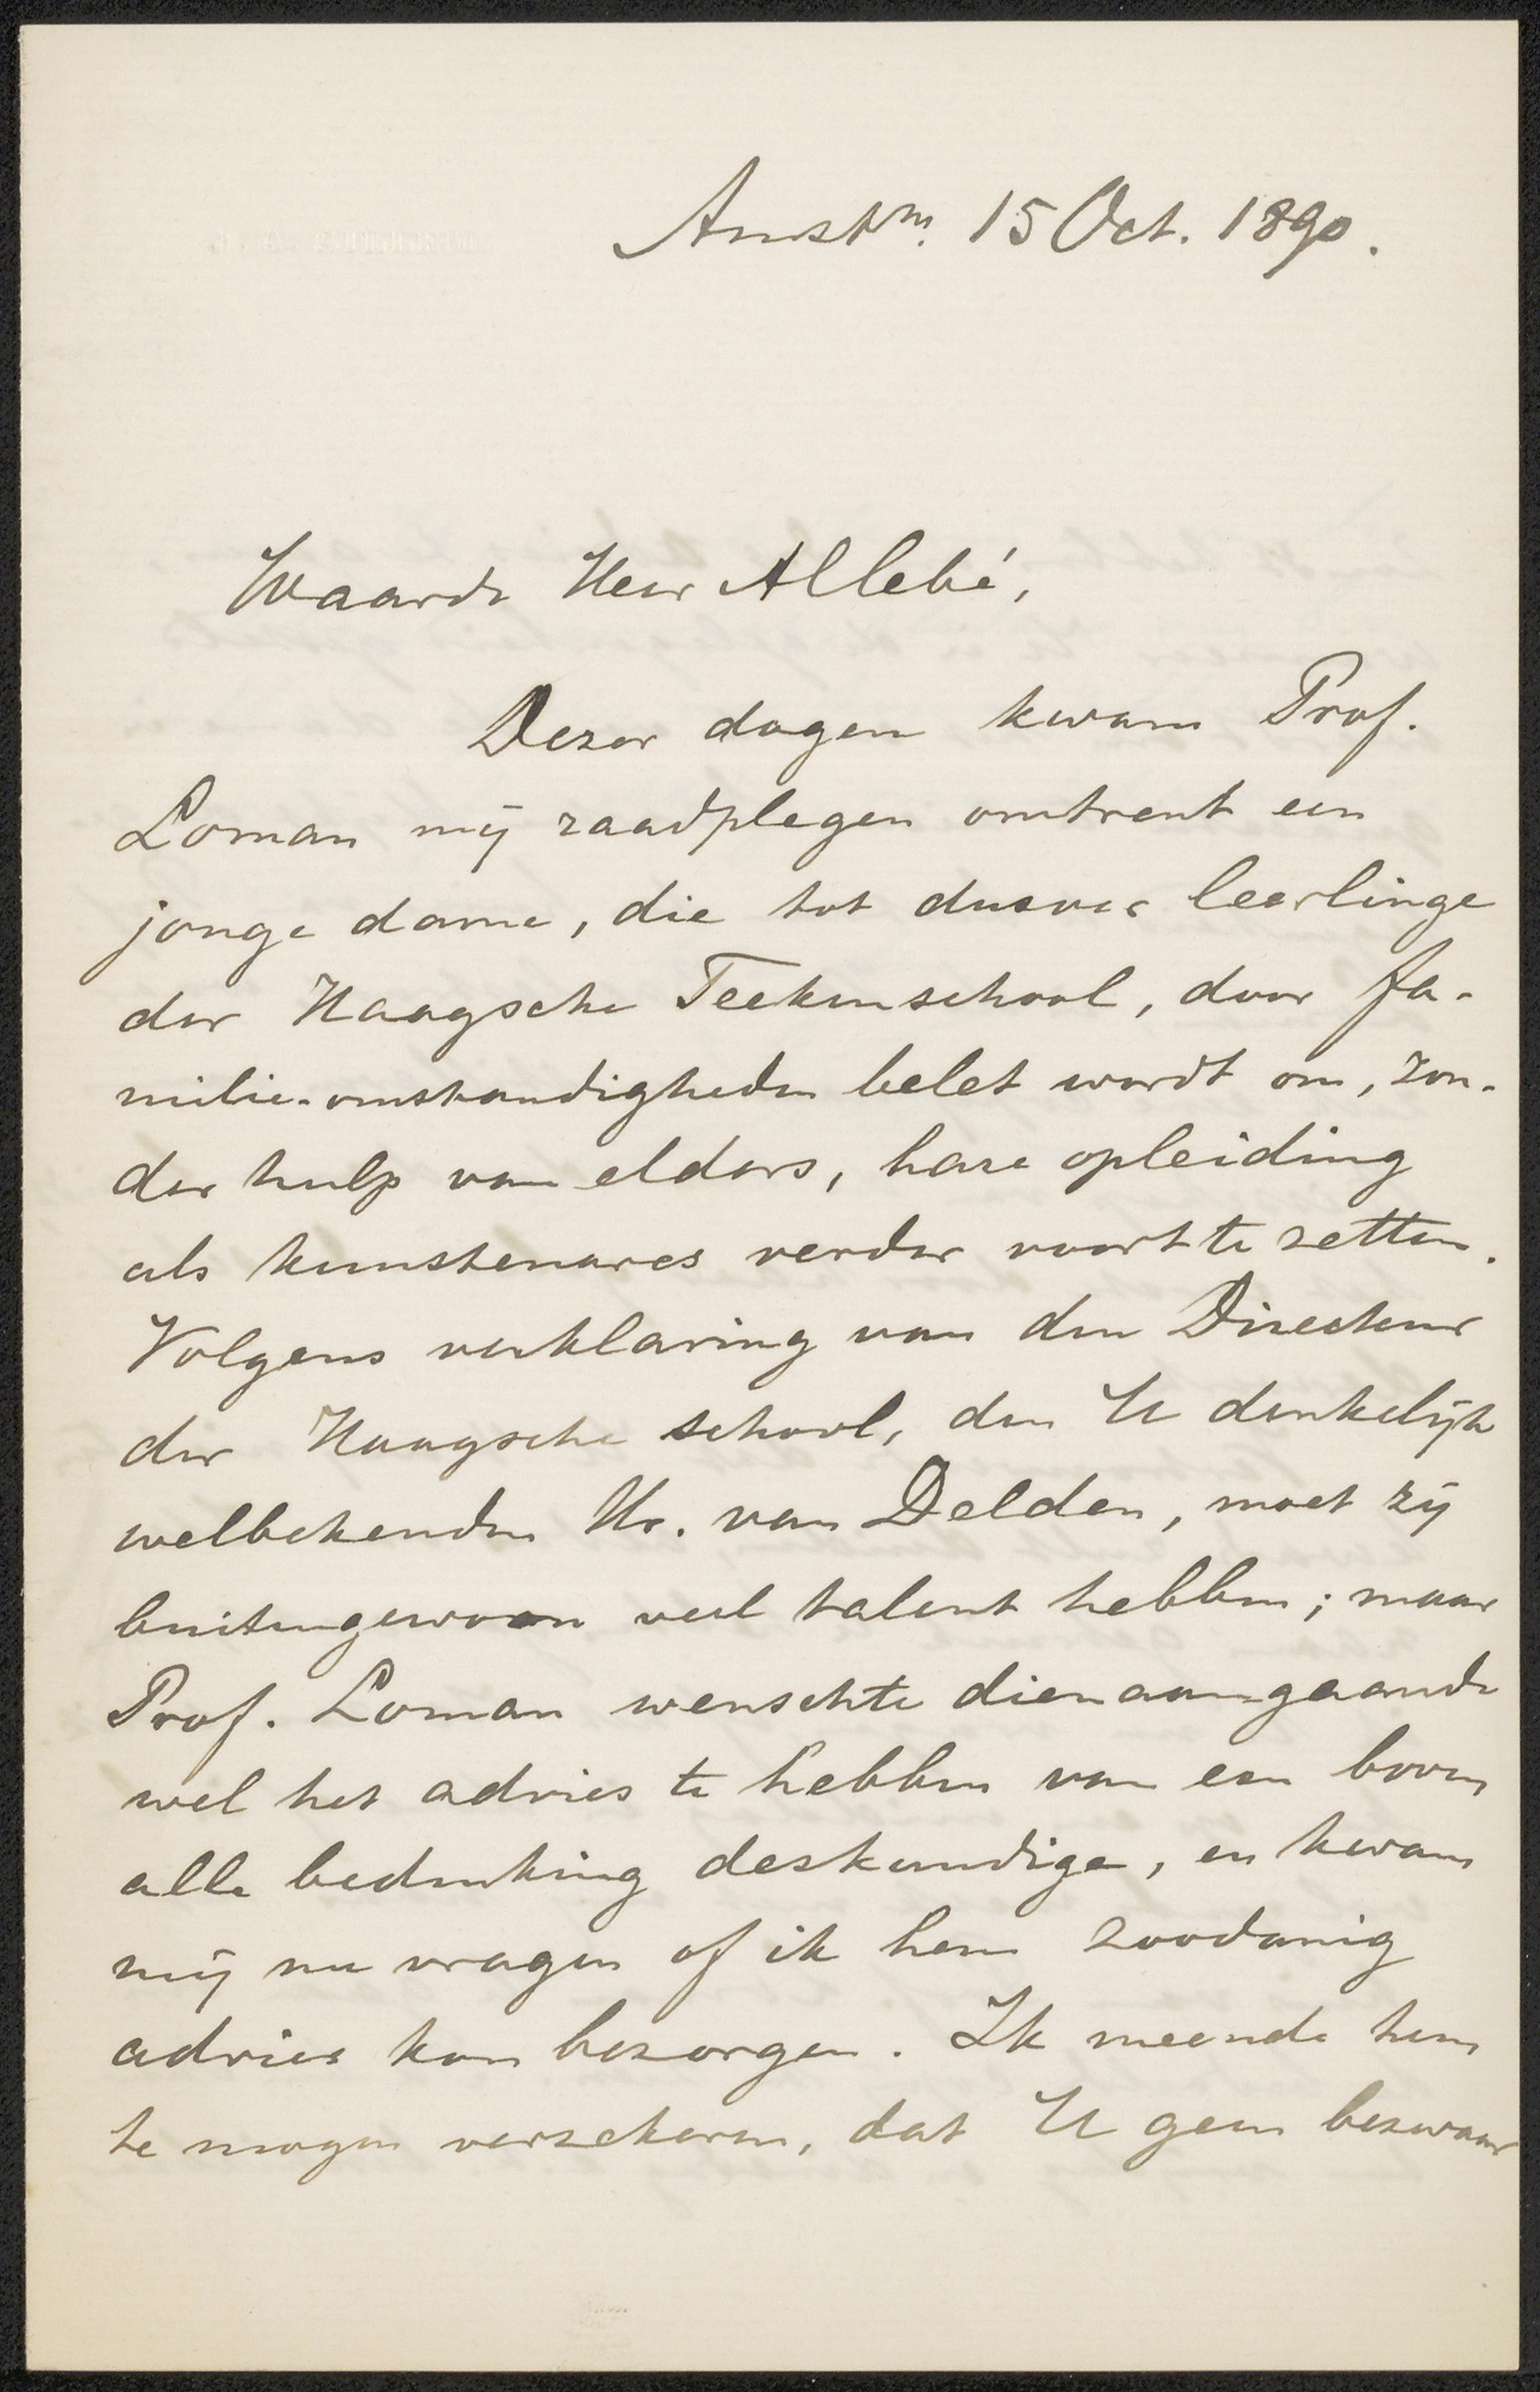 Amstm. 15 Oct. 1890.
Waarde Heer Allebé,
Dezer dagen kwam Prof.
Loman mij raadplegen omtrent een
jonge dame, die tot dusver leerlinge
der Haagsche Teekenschool, door fa-
milie-omstandigheden belet wordt om, zon-
der hulp van elders, hare opleiding
als kunstenares verder voort te zetten.
Volgens verklaring van den Directeur
der Haagsche school, den U denkelijk
welbekenden Hr. van Delden, moet zij
buitengewoon veel talent hebben; maar
Prof. Loman wenschte dienaangaande
wel het advies te hebben van een boven
alle bedenking deskundige, en kwam
mij nu vragen of ik hem zoodanig
advies kon bezorgen. Ik meende hem
te mogen verzekeren, dat U geen bezwaar